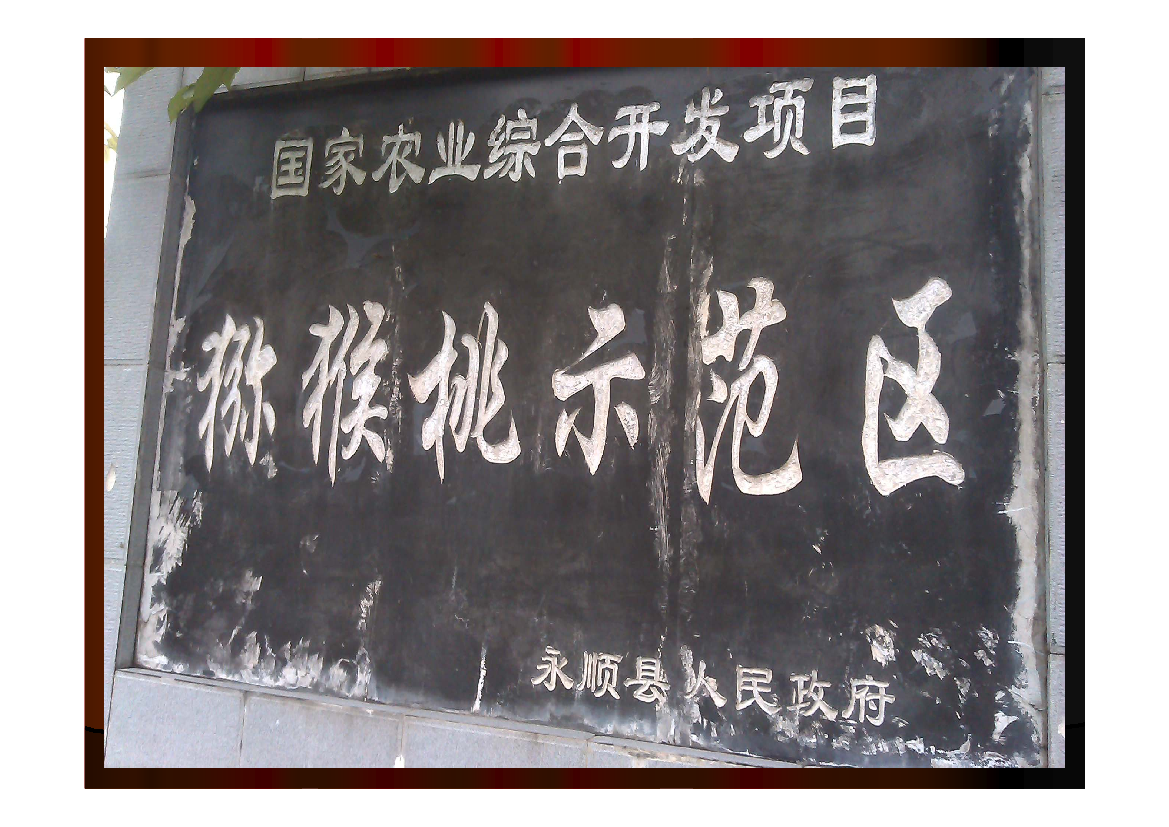 国家农业综合开发项目
猕猴桃示范区
永顺县人民政府